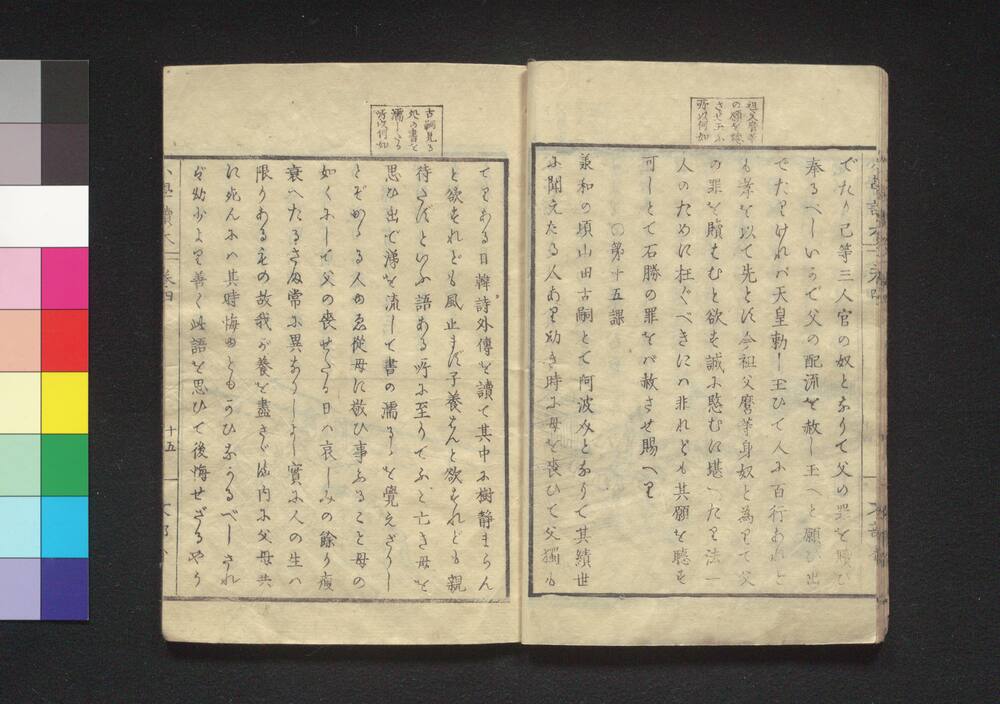 祖父麿等
の願を聴
させ玉ふ
所以何如
でたり己等三人官の奴となりて父の罪を贖ひ
奉るべしいかで父の配流を赦し玉へと願ひ出
でたりければ天皇勅し玉ひて人に百行あれど
も孝を以て先とす今祖父麿等身奴と為りて父
の罪を贖はむと欲す誠に愍むに堪へたり法一
人のために枉ぐべきには非れども其願を聴す
可しとて石勝の罪をば赦させ賜へり
〇第十五課
承和の頃山田古嗣とて阿波介となりて其績世
に聞えたる人あり幼き時に母を喪ひて父獨り
古嗣見る
処の書を
濡したる
所以何如
てありある日韓詩外傳を讀て其中に樹静まらん
と欲すれども風止まず子養はんと欲すれども親
待たずといふ語ある所に至りてふと亡き母を
思ひ出で涕を流して書の濡るゝを覺えざりし
とぞかゝる人ゆゑ従母に敬ひ事ふること母の
如くにして父の喪せたる日は哀しみの餘り痩
衰へたるさま常に異なりしよし實に人の生は
限りあるもの故我が養を盡さゞる内に父母共
に死んには其時悔ゆともかひなかるべしされ
ば幼少より善く此語を思ひて後悔せざるやう
小學讀本 巻四
十五